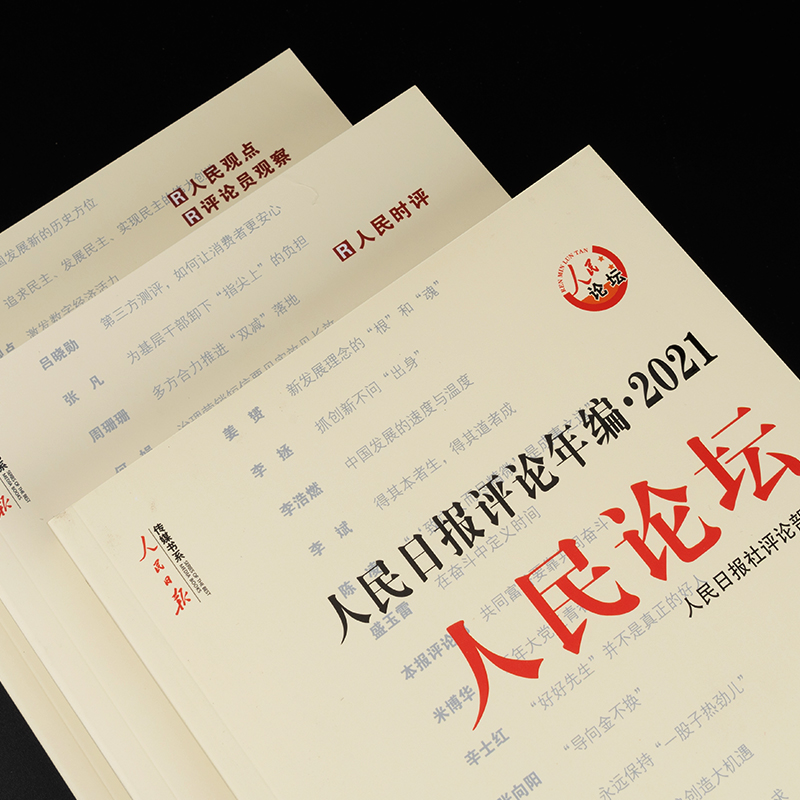 人民观点
评论员观察
国发展新的历史方位
追求民主、发展民主、实现民主的伟大创
激发数字经济活力
人民时评
吕晓勋 第三方测评，如何让消费者更安心
张凡 为基层干部卸下“指尖上”的负担
周珊珊 多方合力推进“双减”落地
REN MIN LUN TAN
人民论坛
姜赟 新发展理念的“根”和“魂”
李拯 抓创新不问“出身”
李浩燃 中国发展的速度与温度
李斌 得其本者生，得其道者成
陈
盛玉雷 在奋斗中定义时间
本报评论 共同富 要靠共同奋斗
米博华 百年大党 青
辛士红 “好好先生”并不是真正的好人
张向阳 “导向金不换”
永远保持“一股子热劲儿”
创造大机遇
人民日报评论年编·2021
人民论坛
人民日报社评论部
人民日报
传媒书系